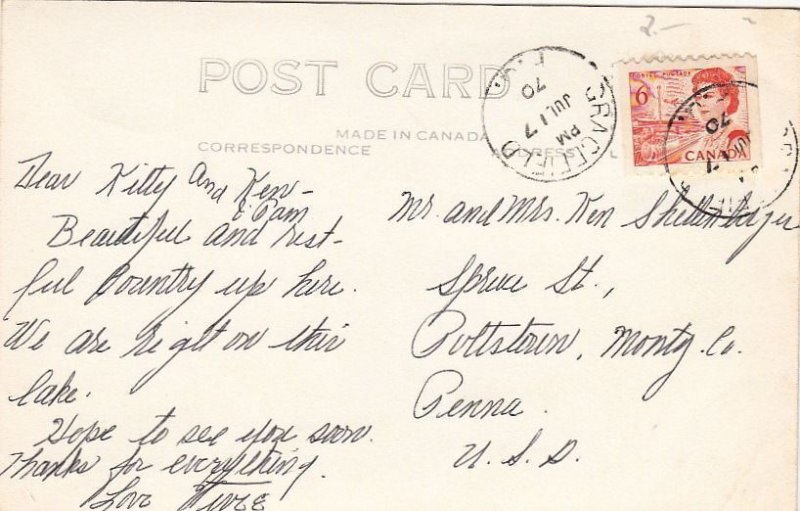 2.-
POST CARD
MADE IN CANADA
CORRESPONDENCE
GRACEFIELD
PM
JUL 17
70
POSTES POSTAGE
6
CANADA
Dear Kitty and Ken-
& Pam
Beautiful and rest-
ful Country up here.
We are right on this
lake.
Hope to see you soon.
Thanks for everything.
Love
Mr. and Mrs. Ken
Spruce St.,
Pottstown, Montg. Co.
Penna.
U. S. A.